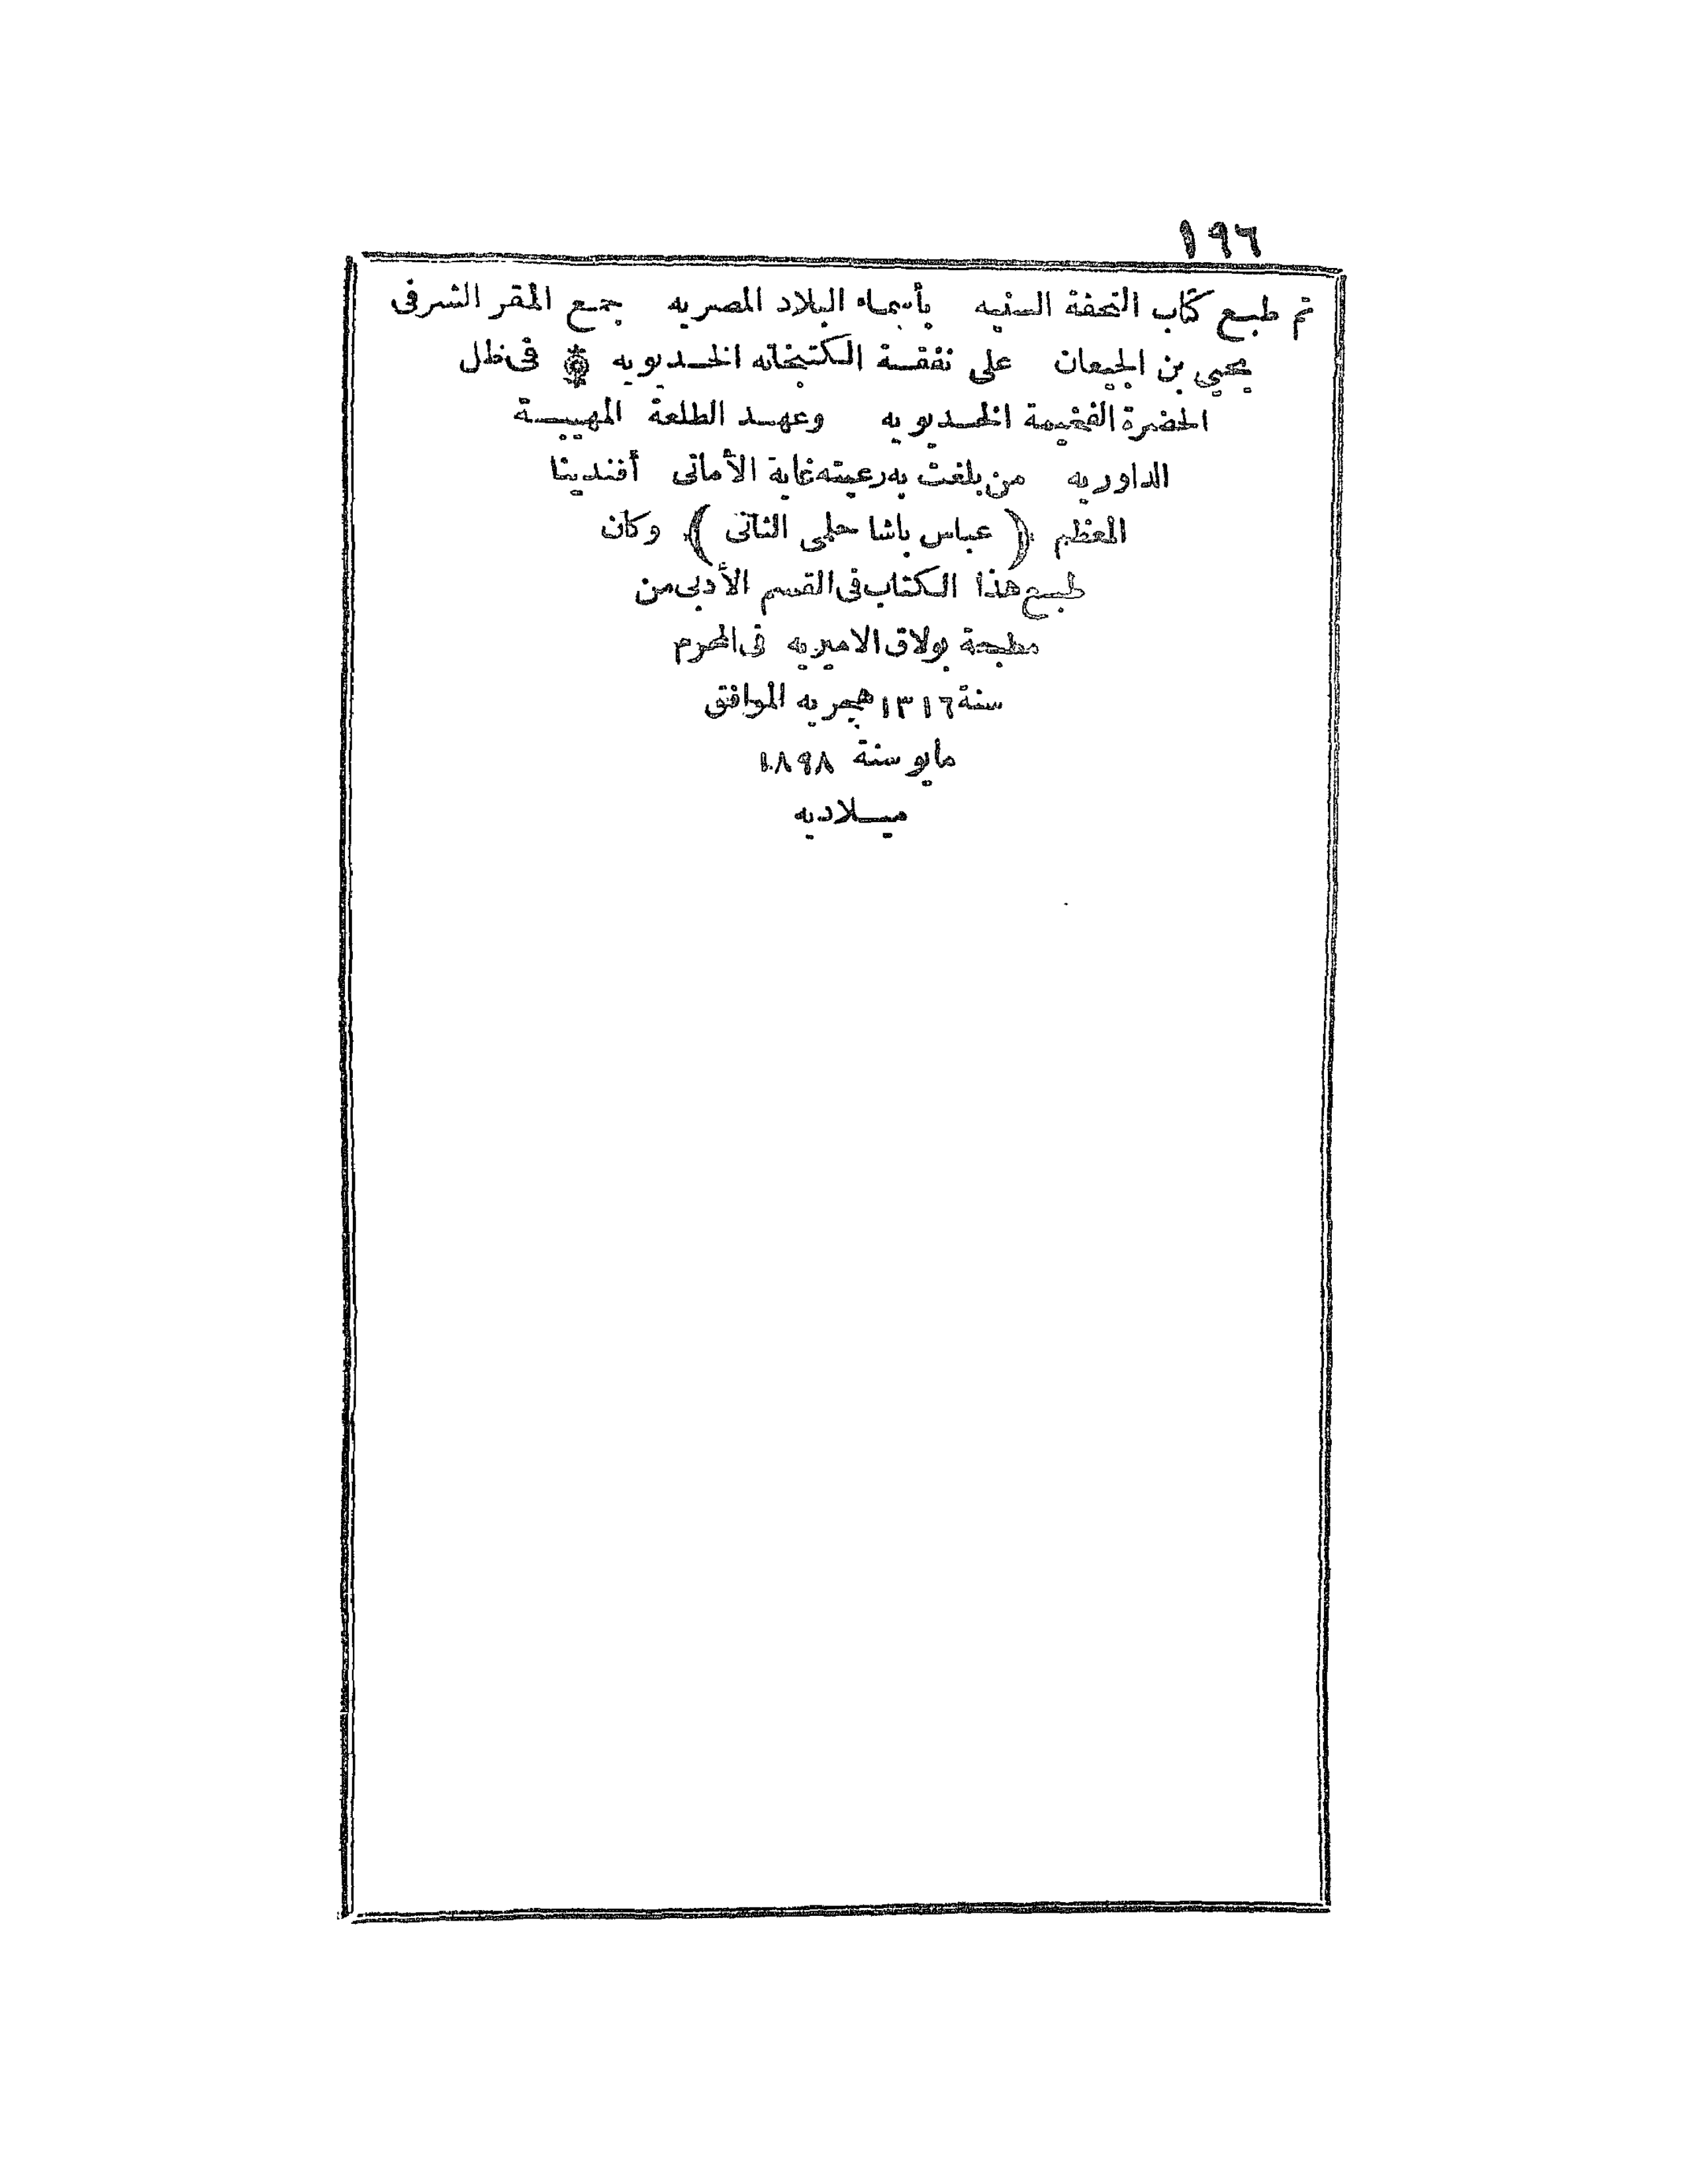 ١٩٦
تم طبع كتاب التحفة السنيه بأسماء البلاد المصريه جمع المقر الشرفى
يحيي بن الجيعان على نفقة الكتبخانه الخديويه في ظل
الحضرة الفخيمة الخديويه وعهد الطلعة المهيبة
الداوريه من بلغت به رعيته غاية الأمانى أفندينا
المعظم ﴿ عباس باشا حلمى الثانى ﴾ وكان
طبع هذا الكتاب فى القسم الأدبى من
مطبعة بولاق الاميريه فى المحرم
سنة ١٣١٦ هجريه الموافق
مايو سنة ١٨٩٨
ميلاديه